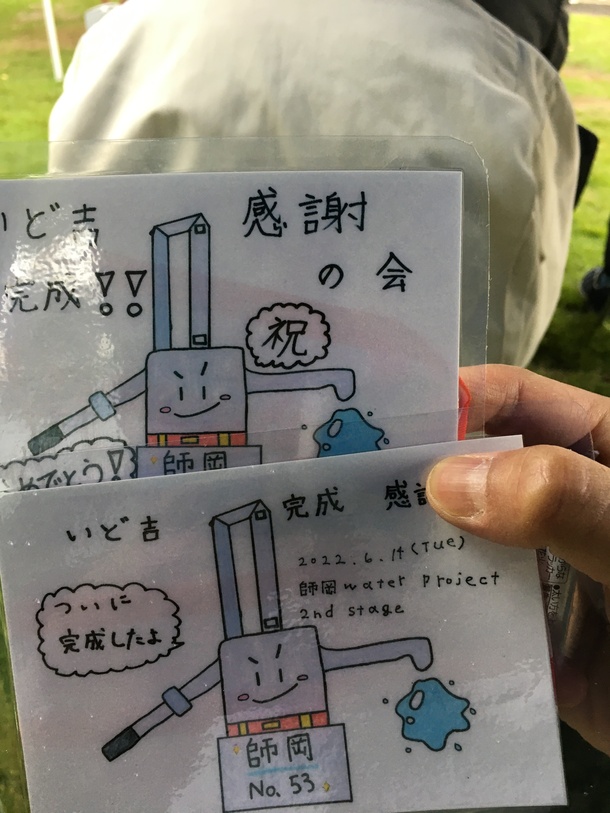 いど吉
完成!!
感謝
の会
祝
めでとう!
師岡
いど吉
完成 感謝
2022.6.14(Tue)
師岡 water Project
2nd stage
ついに
完成したよ
師岡
No.53